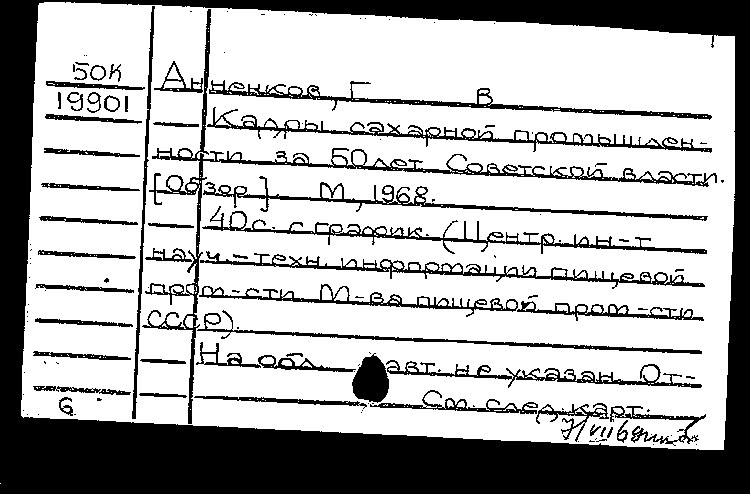 50К Анненков, Г В
19901 Кадры сахарной промышлен-
ности за 50лет Советской власти.
[Обзор]. М., 1968.
40с. с график. (Центр. ин-т
науч.-техн. информации пищевой
пром-сти М-ва пищевой пром-сти
СССР).
На обл. авт. не указан. От-
6 См. след. карт.